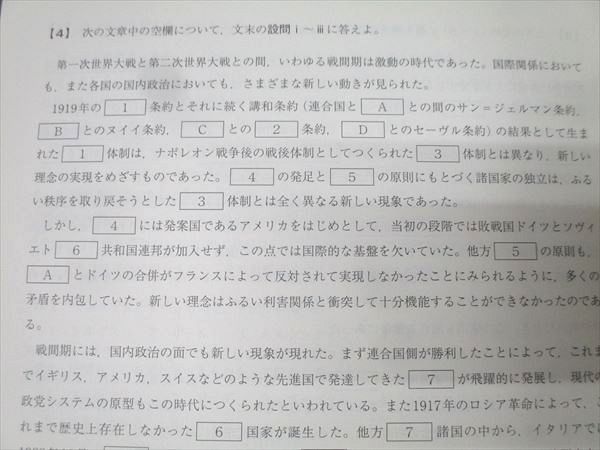 【4】 次の文章中の空欄について,文末の設問ⅰ～ⅲに答えよ。
第一次世界大戦と第二次世界大戦との間,いわゆる戦間期は激動の時代であった。国際関係において
も,また各国の国内政治においても,さまざまな新しい動きが見られた。
1919年の 1 条約とそれに続く講和条約（連合国と A との間のサン＝ジェルマン条約,
B とのヌイイ条約, C との 2 条約, D とのセーヴル条約）の結果として生ま
れた 1 体制は,ナポレオン戦争後の戦後体制としてつくられた 3 体制とは異なり,新しい
理念の実現をめざすものであった。 4 の発足と 5 の原則にもとづく諸国家の独立は,ふる
い秩序を取り戻そうとした 3 体制とは全く異なる新しい現象であった。
しかし, 4 には発案国であるアメリカをはじめとして,当初の段階では敗戦国ドイツとソヴィ
エト 6 共和国連邦が加入せず,この点では国際的な基盤を欠いていた。他方 5 の原則も,
A とドイツの合併がフランスによって反対されて実現しなかったことにみられるように,多くの
矛盾を内包していた。新しい理念はふるい利害関係と衝突して十分機能することができなかったのであ
る。
戦間期には,国内政治の面でも新しい現象が現れた。まず連合国側が勝利したことによって,これま
でイギリス,アメリカ,スイスなどのような先進国で発達してきた 7 が飛躍的に発展し,現代の
政党システムの原型もこの時代につくられたといわれている。また1917年のロシア革命によって,こ
れまで歴史上存在しなかった 6 国家が誕生した。他方 7 諸国の中から,イタリアでは